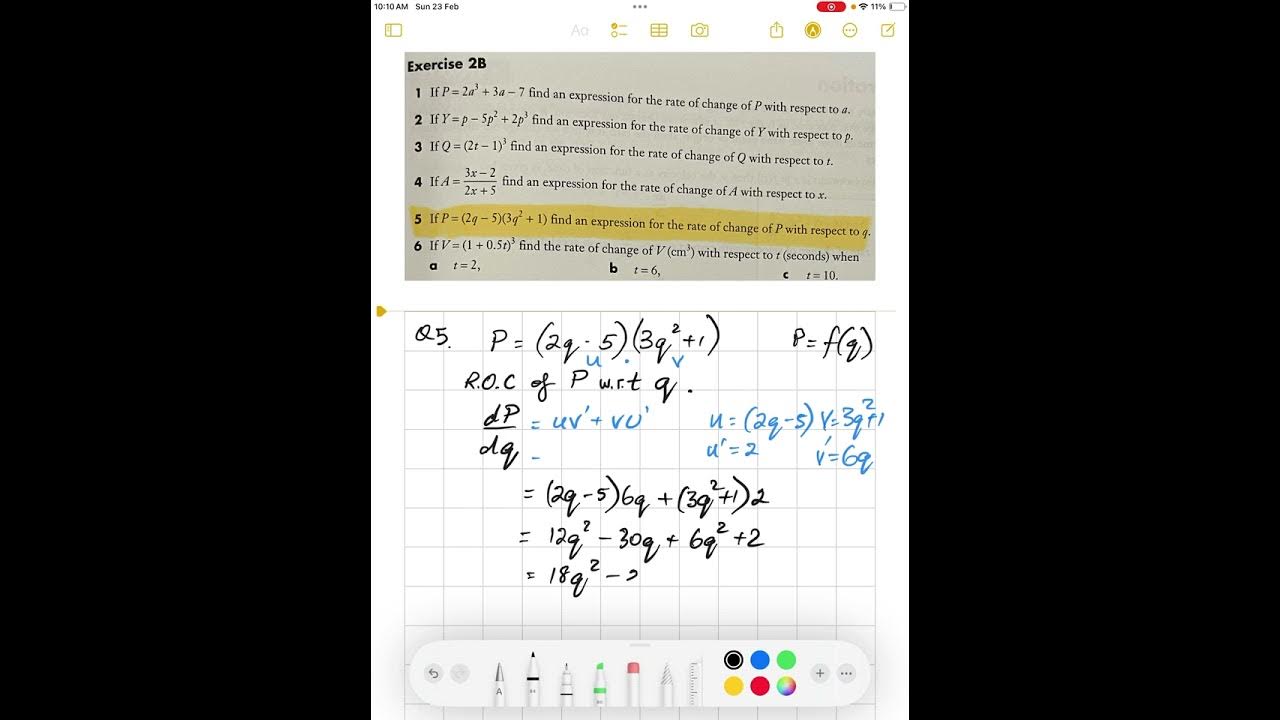 10:10 AM Sun 23 Feb
11%
Aa
Exercise 2B
1 If P = 2a³ + 3a − 7 find an expression for the rate of change of P with respect to a.
2 If Y = p − 5p² + 2p³ find an expression for the rate of change of Y with respect to p.
3 If Q = (2t − 1)³ find an expression for the rate of change of Q with respect to t.
4 If A = (3x − 2)/(2x + 5) find an expression for the rate of change of A with respect to x.
5 If P = (2q − 5)(3q² + 1) find an expression for the rate of change of P with respect to q.
6 If V = (1 + 0.5t)³ find the rate of change of V (cm³) with respect to t (seconds) when
a t = 2, b t = 6, c t = 10.
Q5. P = (2q - 5)(3q²+1) P = f(q)
u . v
R.O.C of P w.r.t q.
dP/dq = uv' + vu' u = (2q-5) v = 3q²+1
= u' = 2 v' = 6q
= (2q-5)6q + (3q²+1)2
= 12q² - 30q + 6q² + 2
= 18q² -
A